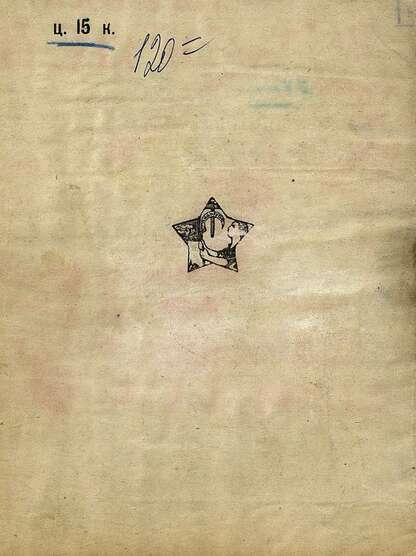 ц. 15 к.
120=